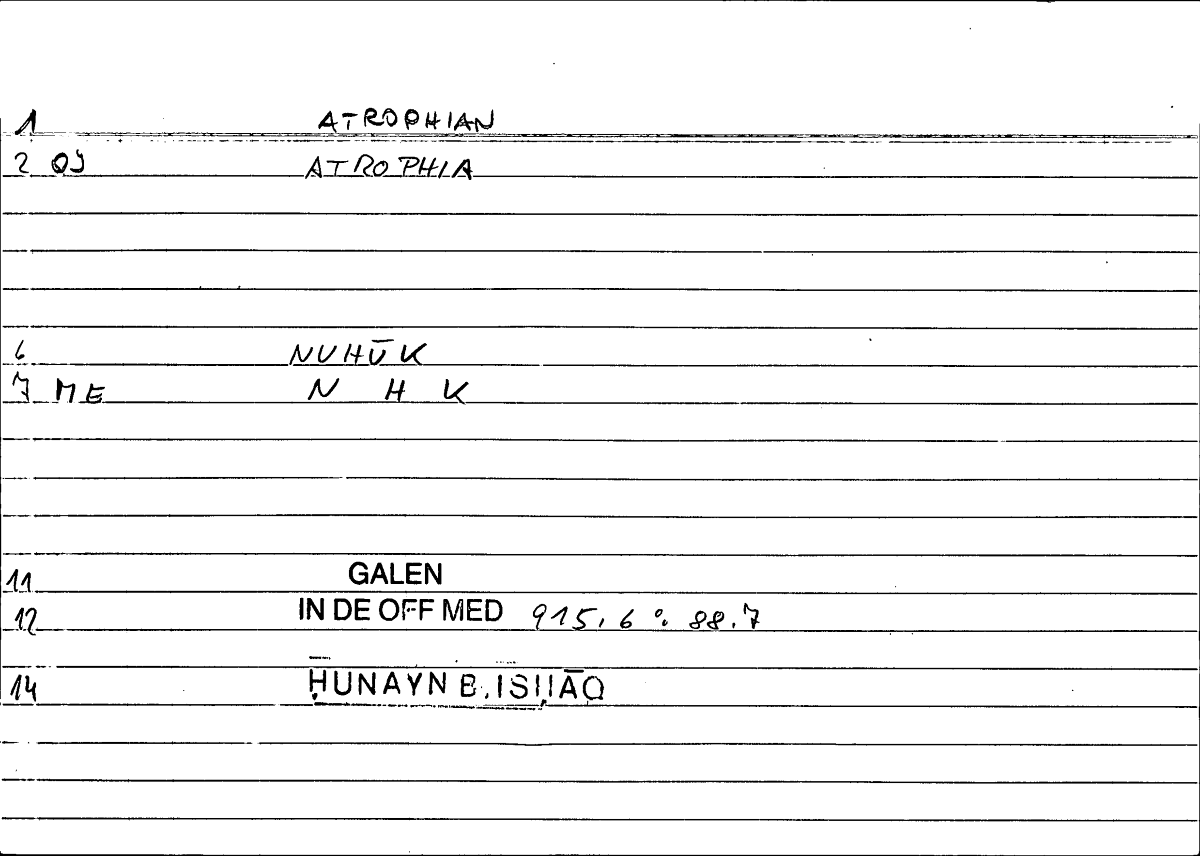 1 ATROPHIAN
2 OJ ATROPHIA
6 NUHŪK
7 ME N H K
11 GALEN
12 IN DE OFF MED 915,6 : 88.7
14 ḤUNAYN B. ISḤĀQ